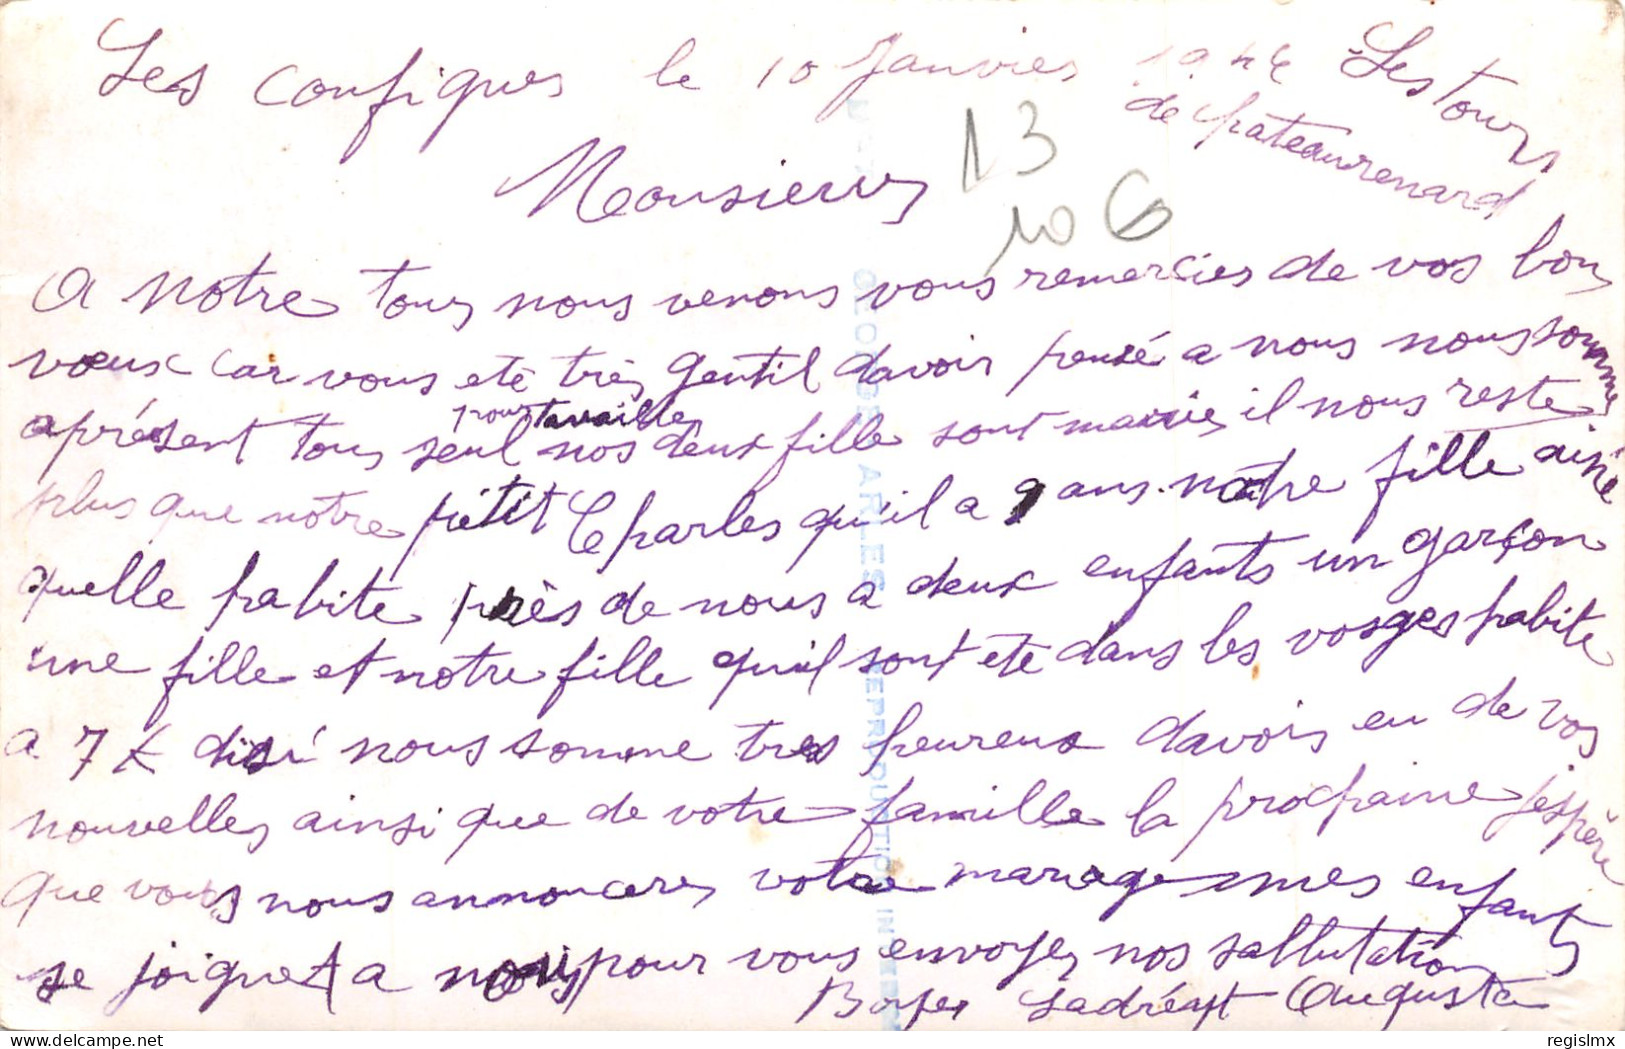 Les confignes le 10 Janvier 1946 Les tours
de chateaurenard
13
10 6
Monsieur
A notre tour nous venons vous remercier de vos bon
vœux car vous ete très gentil davoir pensé a nous nous somme
aprésent tous seul pour travailler nos deux fille sont mariés il nous reste
plus que notre pétit Charles qu'il a 9 ans notre fille ainé
quelle habite près de nous a deux enfants un garçon
une fille et notre fille qu'il sont ete dans les vosges habite
a 7 K dici nous somme tres heureux davoir eu de vos
nouvelles ainsi que de votre famille la prochaine j'espère
que vous nous annoncerez votre mariage mes enfants
se joignet a nous pour vous envoyer nos sallutation
Boyer Ladréyt Augusta
GEORGE ARLES REPRODUCTION INTER
regislmx